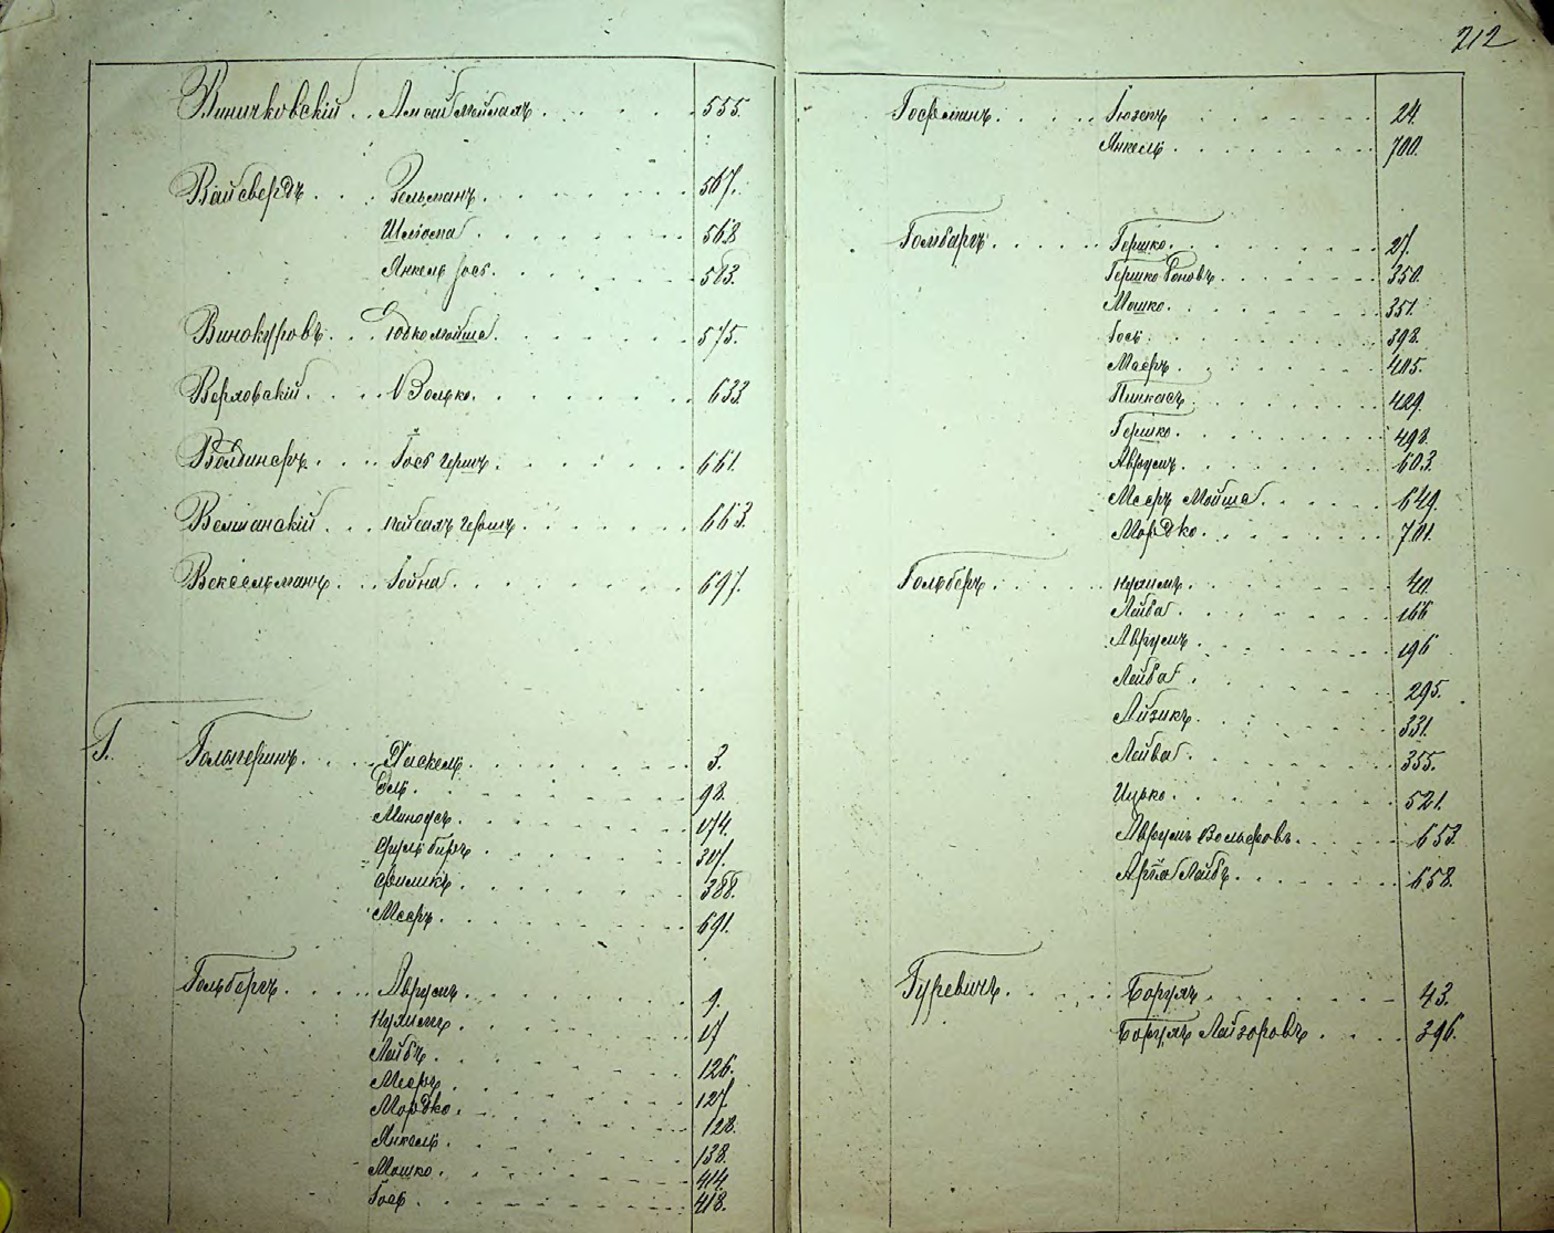 212
Виничковскій . . . 555.
Вайсбердъ . . . Зельманъ . . . 567.
Шліома . . . 568
Янкель Іосъ . . . 583.
Винокуровъ . . . Юдко мойша . . . 575.
Верховскій . . . Волько . . . 633
Волдинеръ . . . Іосъ Гершъ . . . 661.
Велианскій . . . Гершъ . . . 663.
Вексельманъ . . . Гойна . . . 697.
Г. Гольдгеринъ . . . Хаскель . . . 3.
Ель . . . 98.
174.
307.
388.
Мееръ . . . 691.
Гольбергъ . . . Аврумъ . . . 9.
Нухимъ . . . 17
Лейбъ . . . 126.
Мееръ . . . 127.
Мордко . . . 128.
Янкель . . . 138.
Мошко . . . 414.
Іось . . . 418.
Гофманъ . . . Іюзепъ . . . 24.
Янкель . . . 700.
Гольбаргъ . . . Гершко . . . 27.
Гершко . . . 350.
Мошко . . . 351.
Іось . . . 398.
Маеръ . . . 405.
Пинкасъ . . . 429.
Гершко . . . 498.
Аврумъ . . . 603.
Мееръ Мойша . . . 649.
Мордко . . . 701.
Гольберъ . . . Нухимъ . . . 40.
Лейба . . . 166
Аврумъ . . . 196
Лейба . . . 295.
Айзикъ . . . 331.
Лейба . . . 355.
Ицько . . . 521.
Аврумъ Вольфовъ . . . 653.
Арія Лейбъ . . . 658.
Гуревичъ . . . Борухъ . . . 43.
Борухъ Лейзоровъ . . . 396.